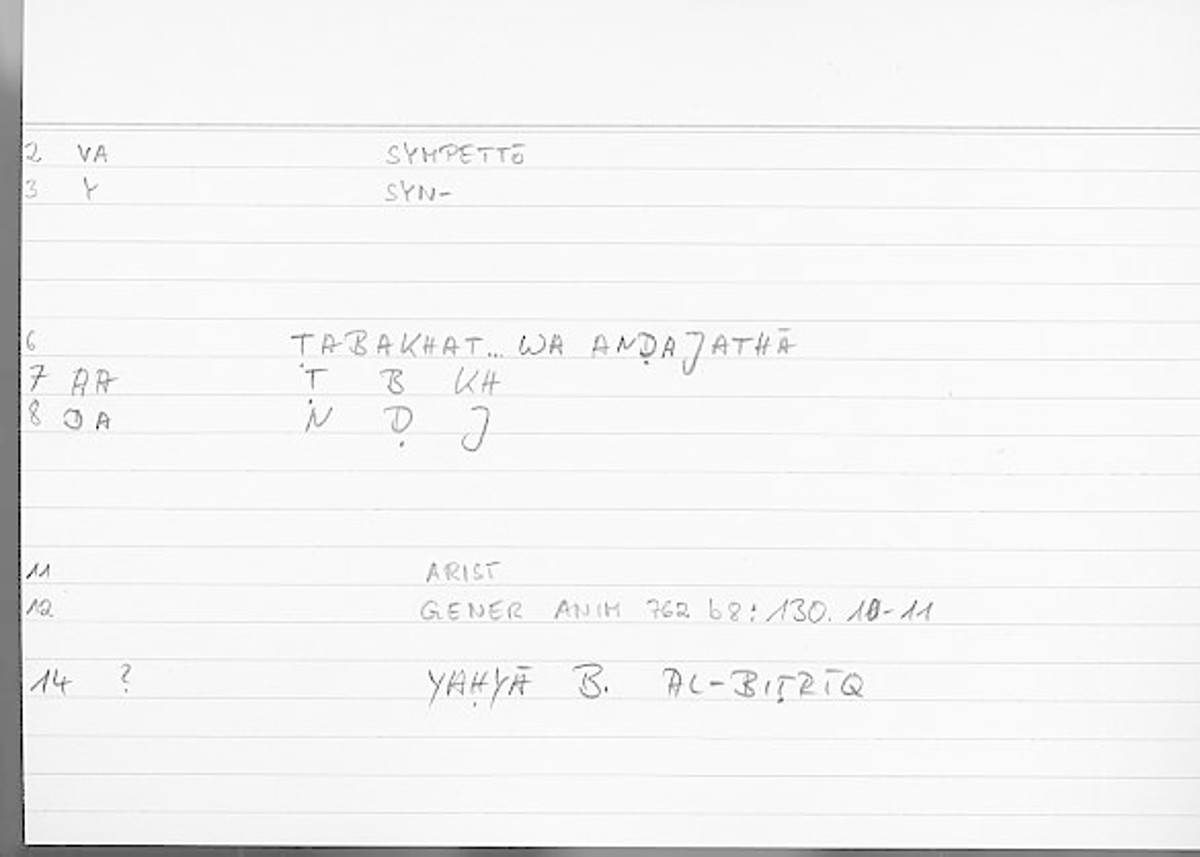 2 VA SYMPETTŌ
3 Y SYN-
6 ṬABAKHAT... WA ANḌAJATHĀ
7 AA Ṭ B KH
8 OA N Ḍ J
11 ARIST
12 GENER ANIM 762 b8: 130. 10-11
14 ? YAḤYĀ B. AL-BIṬRĪQ